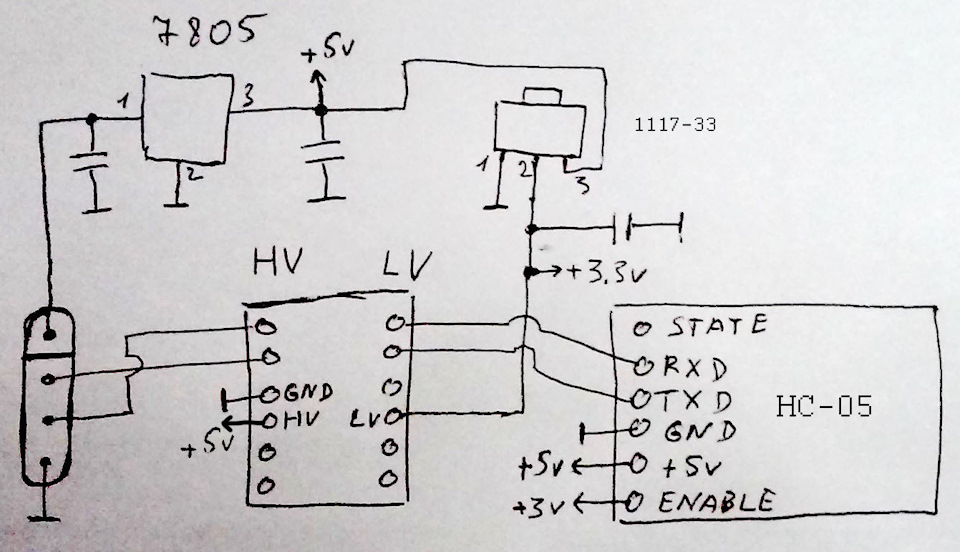 7805
+5v
1
3
2
1117-33
1
2
3
+3.3v
HV
LV
GND
HV
LV
+5v
STATE
RXD
TXD
HC-05
GND
+5v
+5v
+3v
ENABLE